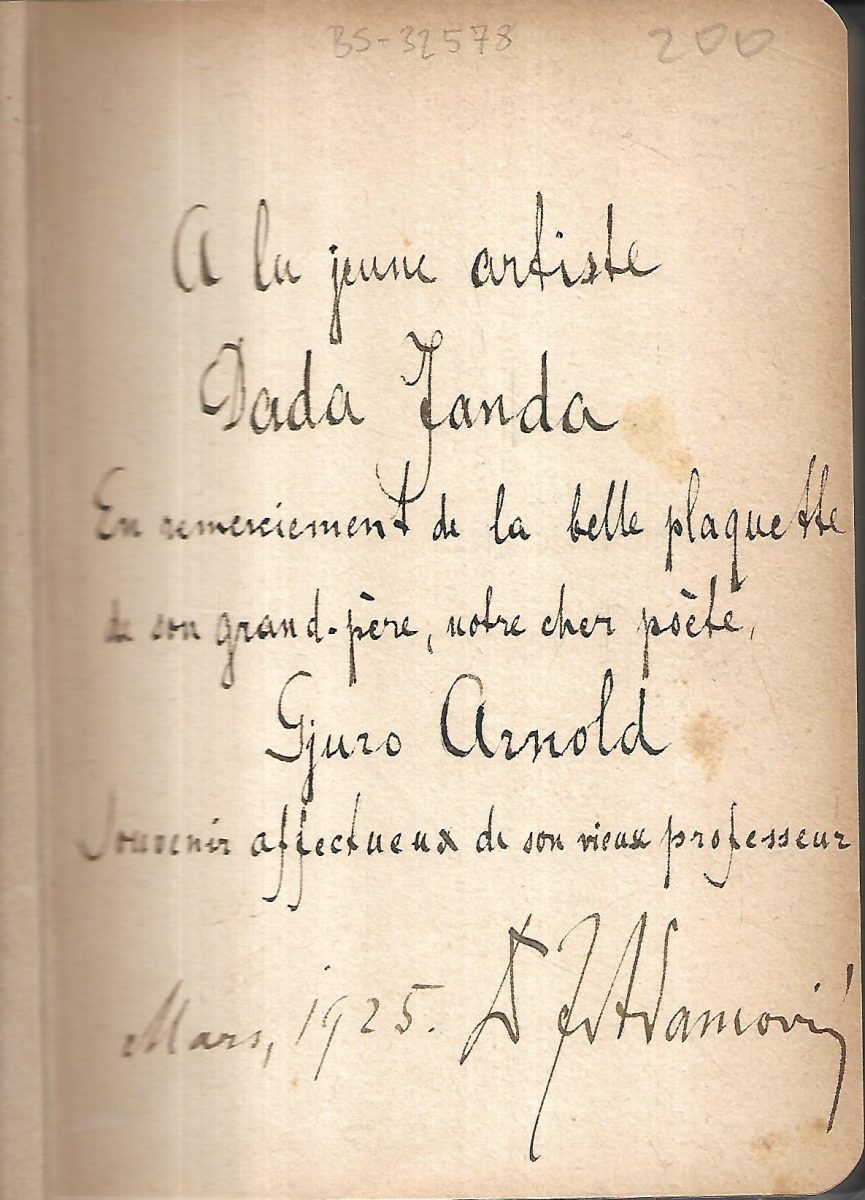 BS-32578 200
A la jeune artiste
Dada Janda
En remerciement de la belle plaquette
de son grand-père, notre cher poète,
Gjuro Arnold
Souvenir affectueux de son vieux professeur
Mars, 1925. Adamović